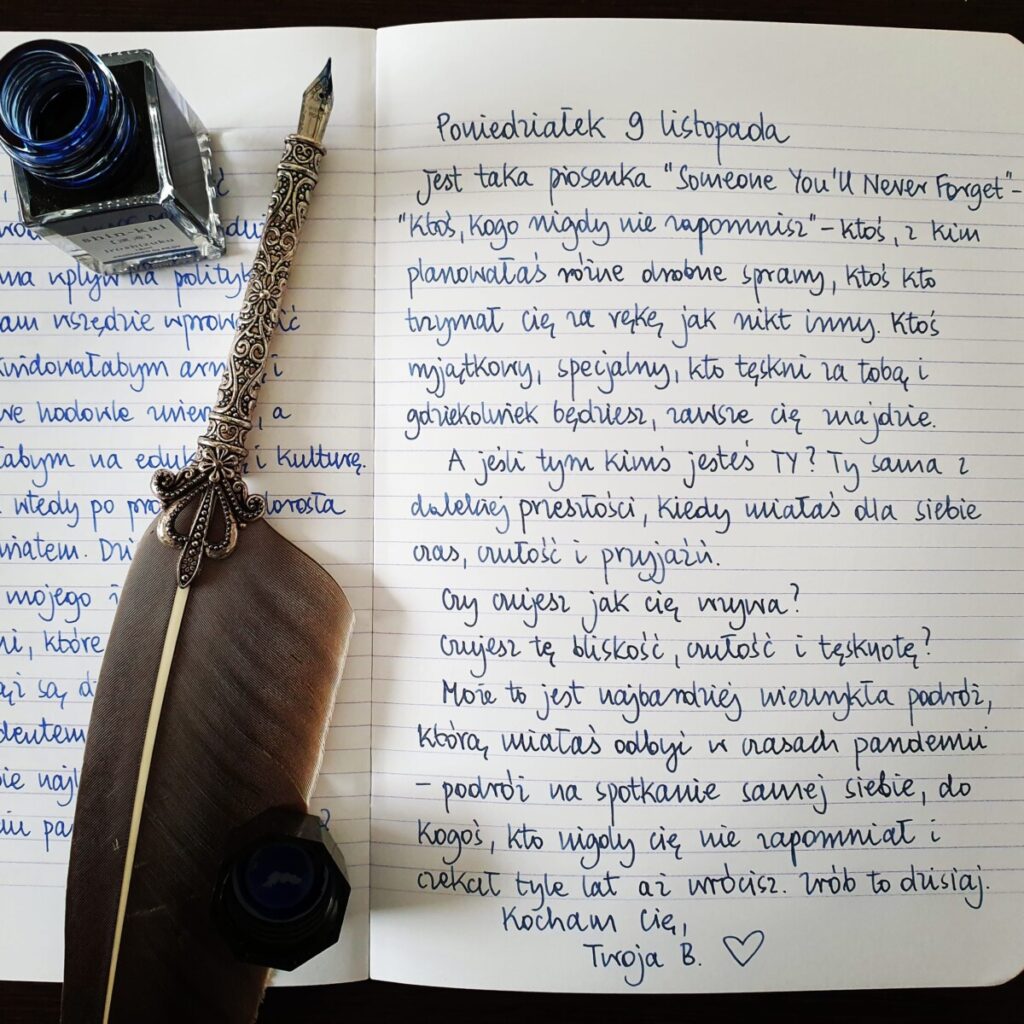 shin-kai
iroshizuku
ma wpływ na polityk
am wszędzie wprow
kwidowałabym arm i
we hodowle zwier , a
abym na eduk i kulturę.
wtedy po pro dorosła
wiatem. Dzi
mojego i
ni, które
są d
dentem
bie najl
Poniedziałek 9 listopada
Jest taka piosenka "Someone You'll Never Forget" -
"Ktoś, kogo nigdy nie zapomnisz" - ktoś, z kim
planowałaś różne drobne sprawy, ktoś kto
trzymał cię za rękę jak nikt inny. Ktoś
wyjątkowy, specjalny, kto tęskni za tobą i
gdziekolwiek będziesz, zawsze cię znajdzie.
A jeśli tym kimś jesteś TY? Ty sama z
dalekiej przeszłości, kiedy miałaś dla siebie
czas, czułość i przyjaźń.
Czy czujesz jak cię wzywa?
Czujesz tę bliskość, czułość i tęsknotę?
Może to jest najbardziej niezwykła podróż,
którą miałaś odbyć w czasach pandemii
- podróż na spotkanie samej siebie, do
kogoś, kto nigdy cię nie zapomniał i
czekał tyle lat aż wrócisz. Zrób to dzisiaj.
Kocham Cię,
Twoja B. ♡